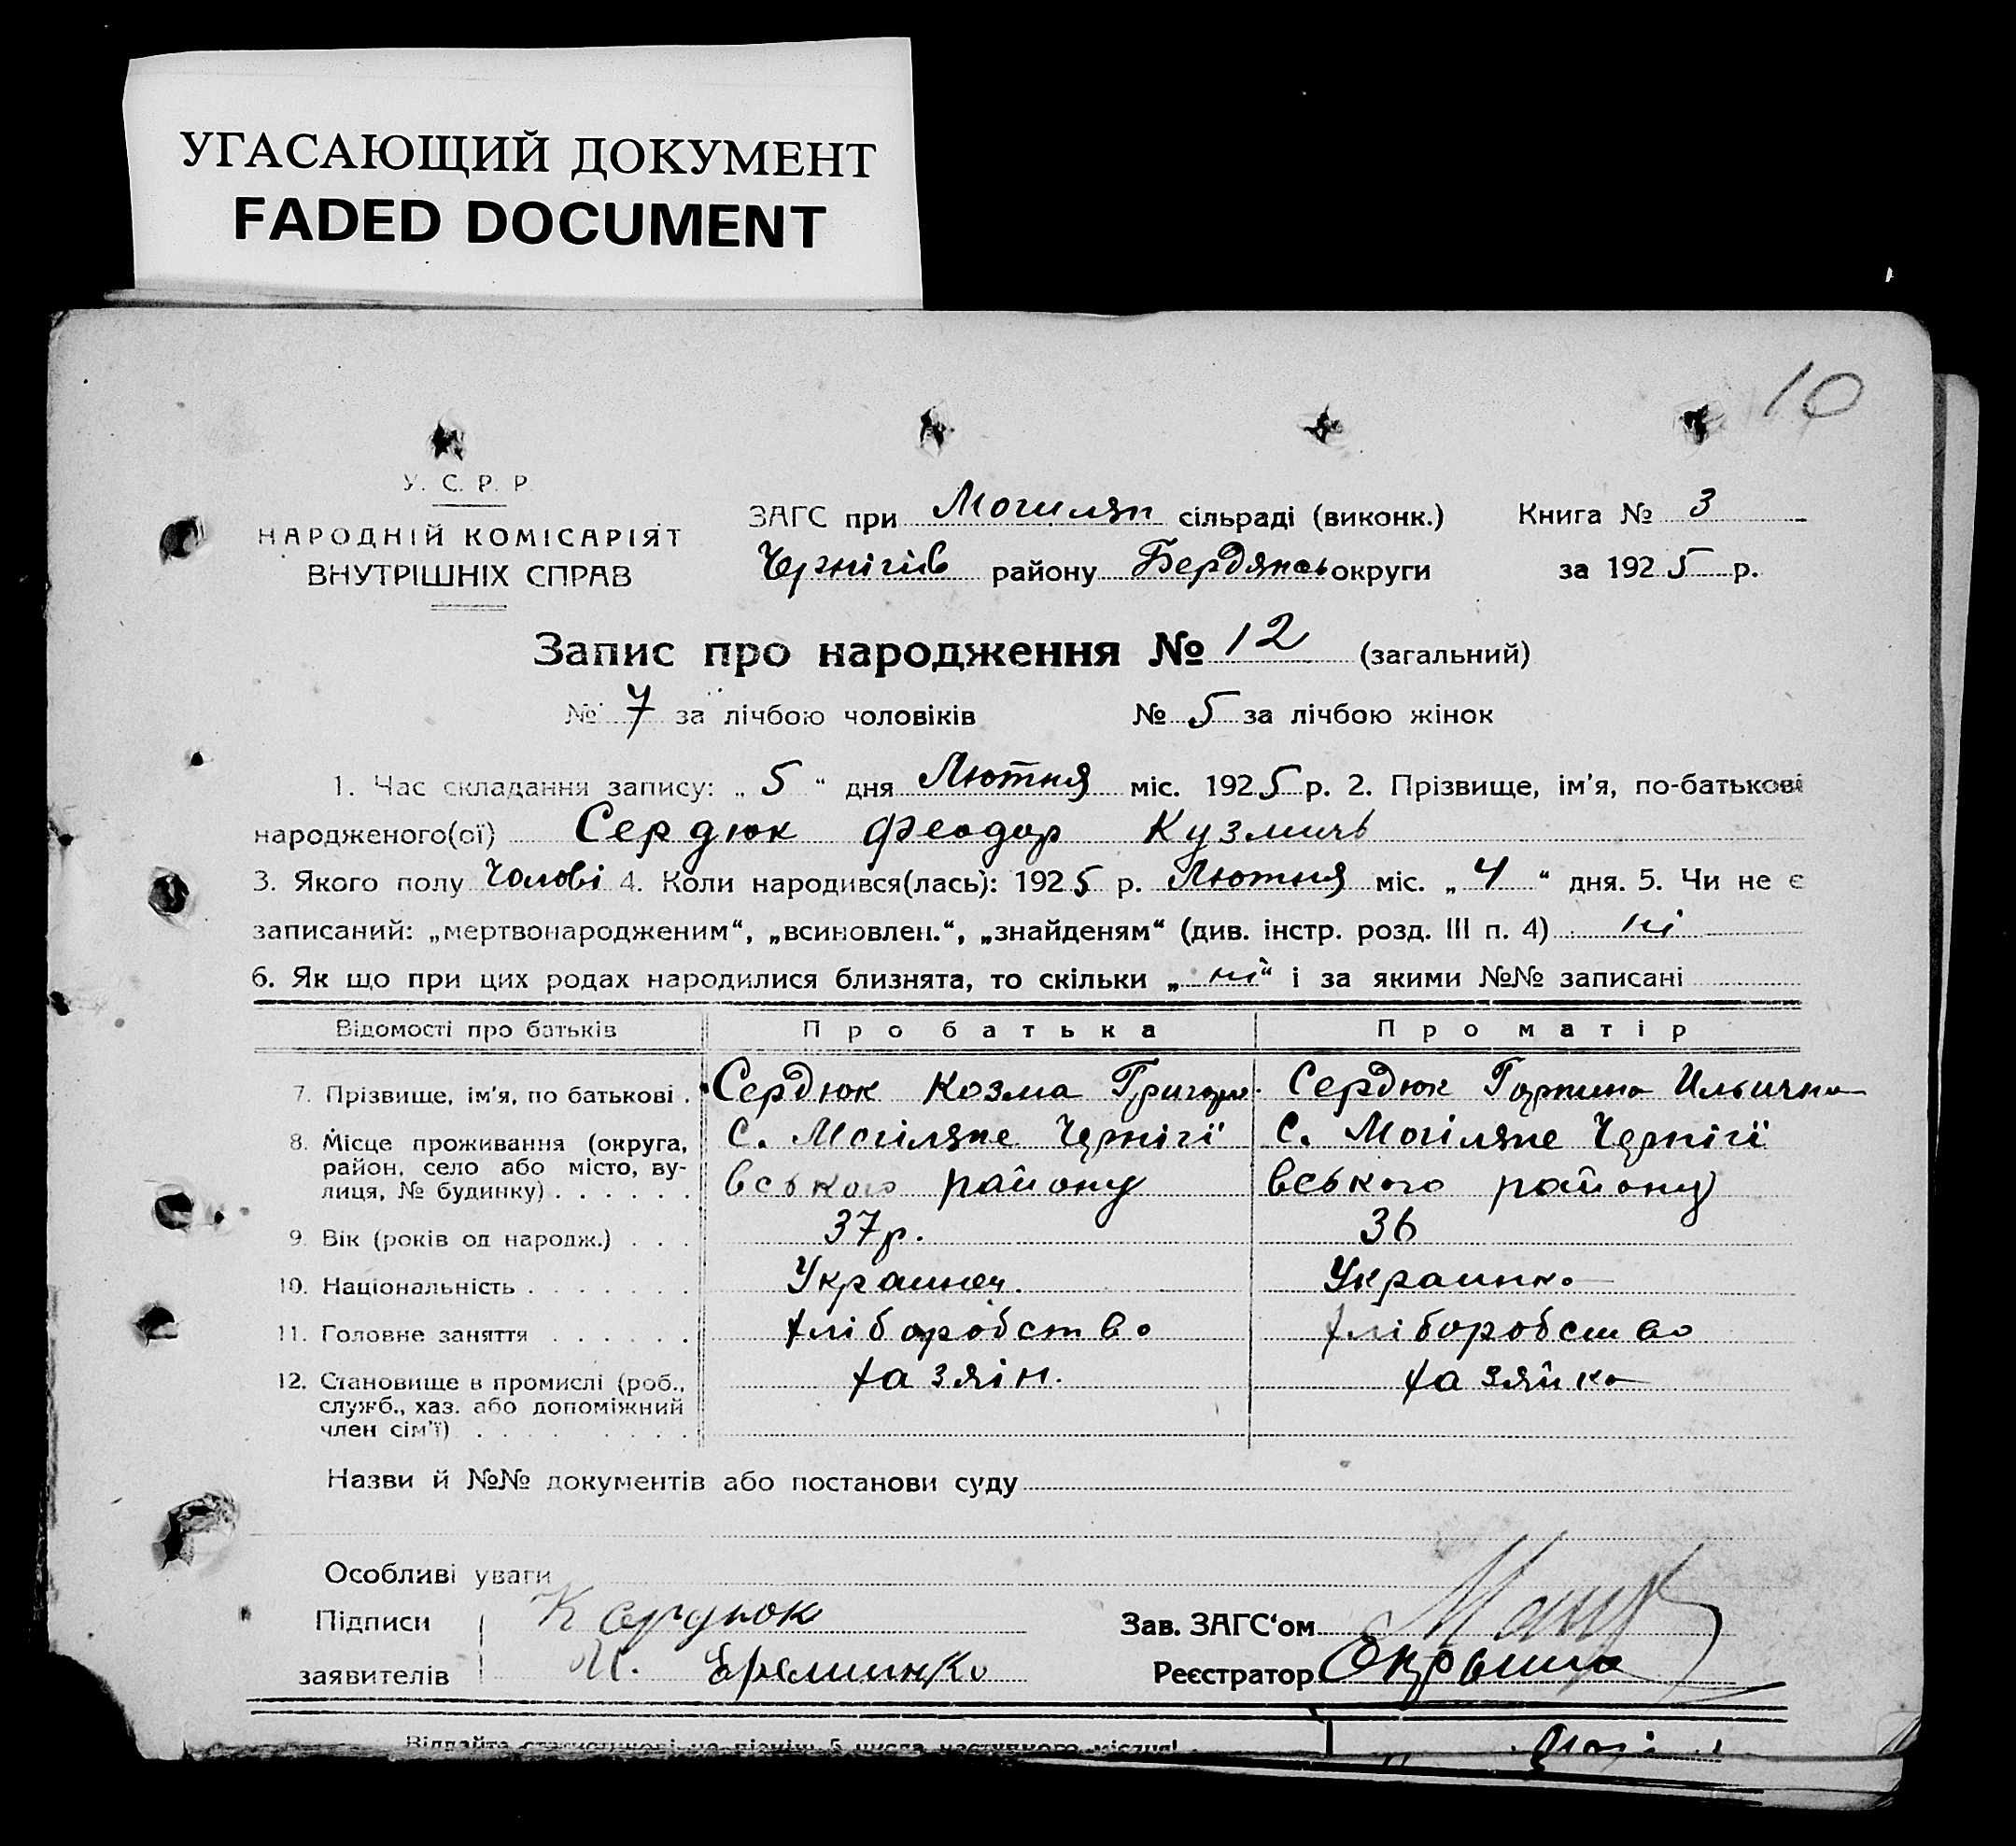 УГАСАЮЩИЙ ДОКУМЕНТ
FADED DOCUMENT
10
У. С. Р. Р.
НАРОДНІЙ КОМІСАРІЯТ
ВНУТРІШНІХ СПРАВ
ЗАГС при Могилян сільраді (виконк.) Книга № 3
Чернігів району Бердянсь округи за 1925 р.
Запис про народження № 12 (загальний)
№ 7 за лічбою чоловіків № 5 за лічбою жінок
1. Час складання запису: „ 5 “ дня Лютня міс. 1925 р. 2. Прізвище, ім'я, по-батькові
народженого(ої) Сердюк Феодор Кузмичь
3. Якого полу Чолові 4. Коли народився(лась): 1925 р. Лютня міс. „ 4 “ дня. 5. Чи не є
записаний: „мертвонародженим“, „всиновлен.“, „знайденям“ (див. інстр. розд. III п. 4) ні
6. Як що при цих родах народилися близнята, то скільки „ ні “ і за якими №№ записані
Відомості про батьків Про батька Про матір
7. Прізвище, ім'я, по батькові . Сердюк Козма Григор Сердюк Горпина Ильична
8. Місце проживання (округа, С. Могіляне Чернігї С. Могіляне Чернігї
район, село або місто, ву-
лиця, № будинку) . . . . . . вського району вського району
9. Вік (років од народж.) . . . 37р. 36
10. Національність . . . . . . . Украинец. Украинка
11. Головне заняття . . . . . . хліборобство хліборобство
12. Становище в промислі (роб., хазяін. хазяйка
служб., хаз. або допоміжний
член сім'ї) . . . . . . . .
Назви й №№ документів або постанови суду
Особливі уваги
Підписи К Сердюк Зав. ЗАГС‘ом
заявителів И. Ереминко Реєстратор
Віддайте статистикові не пізніш 5 числа наступного місяця!